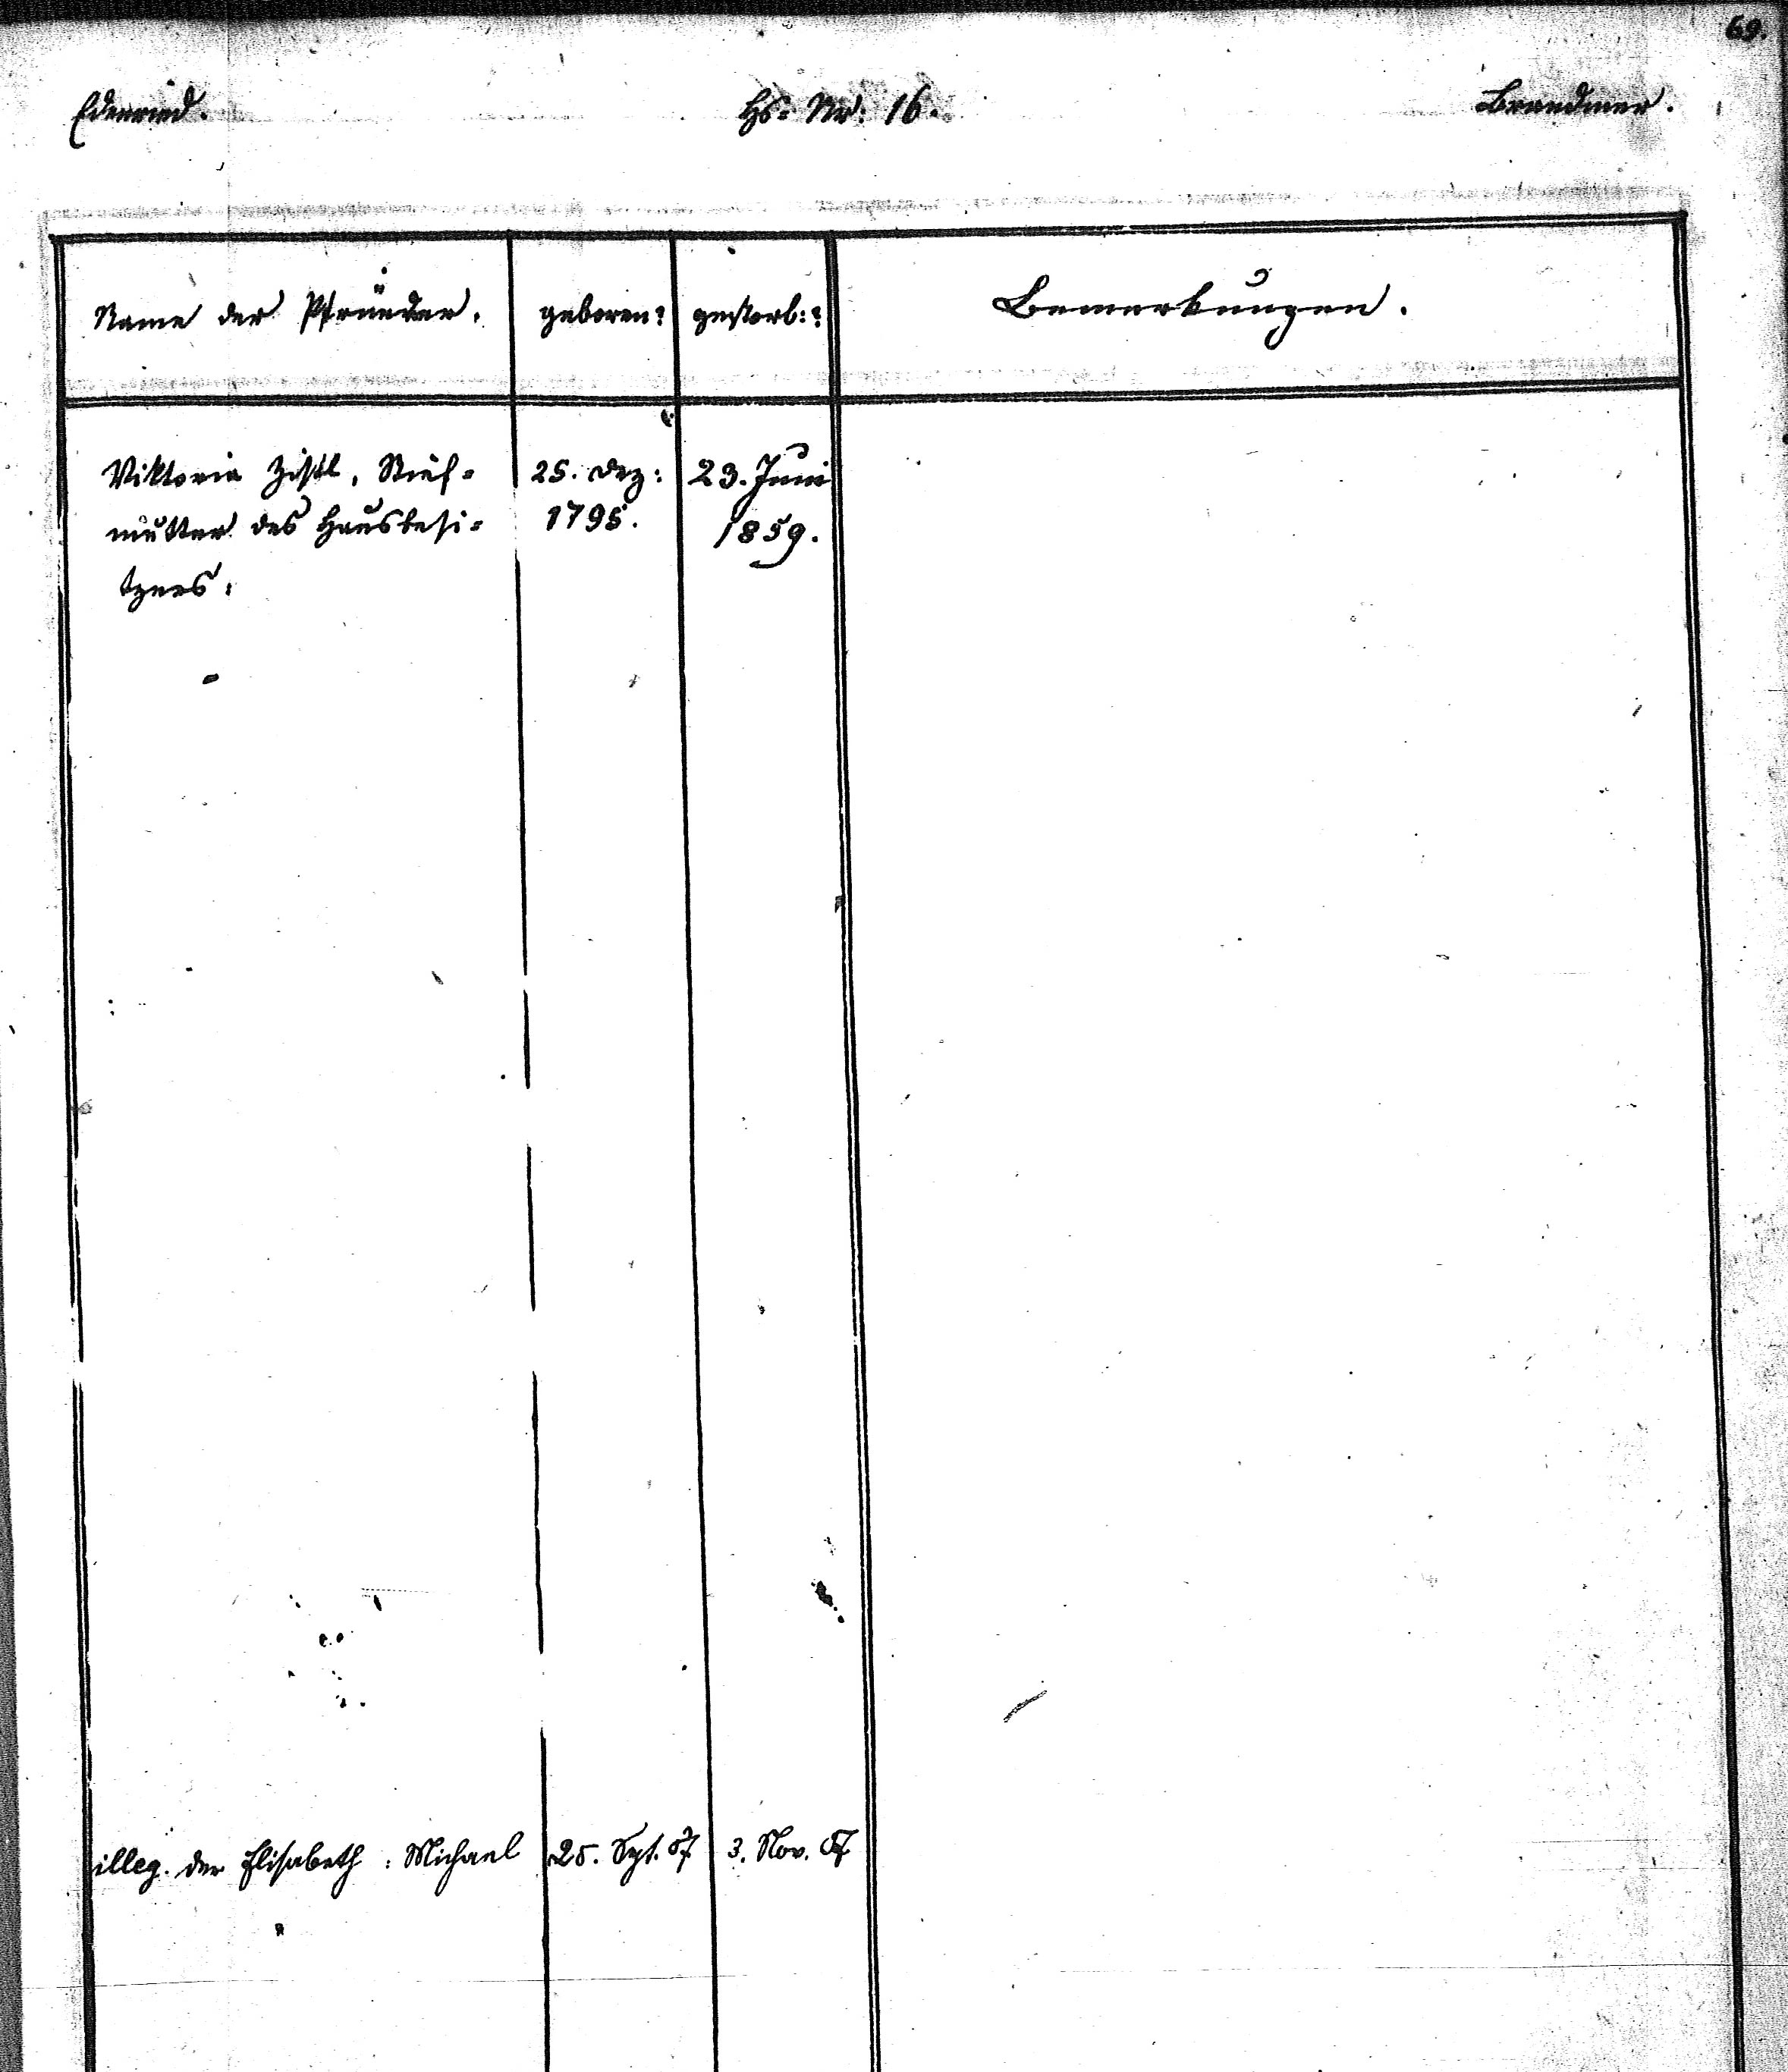 69.
Edenried. Hs: Nr: 16. Brandmer.
Name der Pfründer. geboren? gestorb:? Bemerkungen.
Viktoria Zistl, Stief= 25. Dez: 23. Juni
mutter des Hausbesi= 1795. 1859.
tzers.
illeg. der Elisabeth: Michael 25. Sept. 57 3. Nov. 57